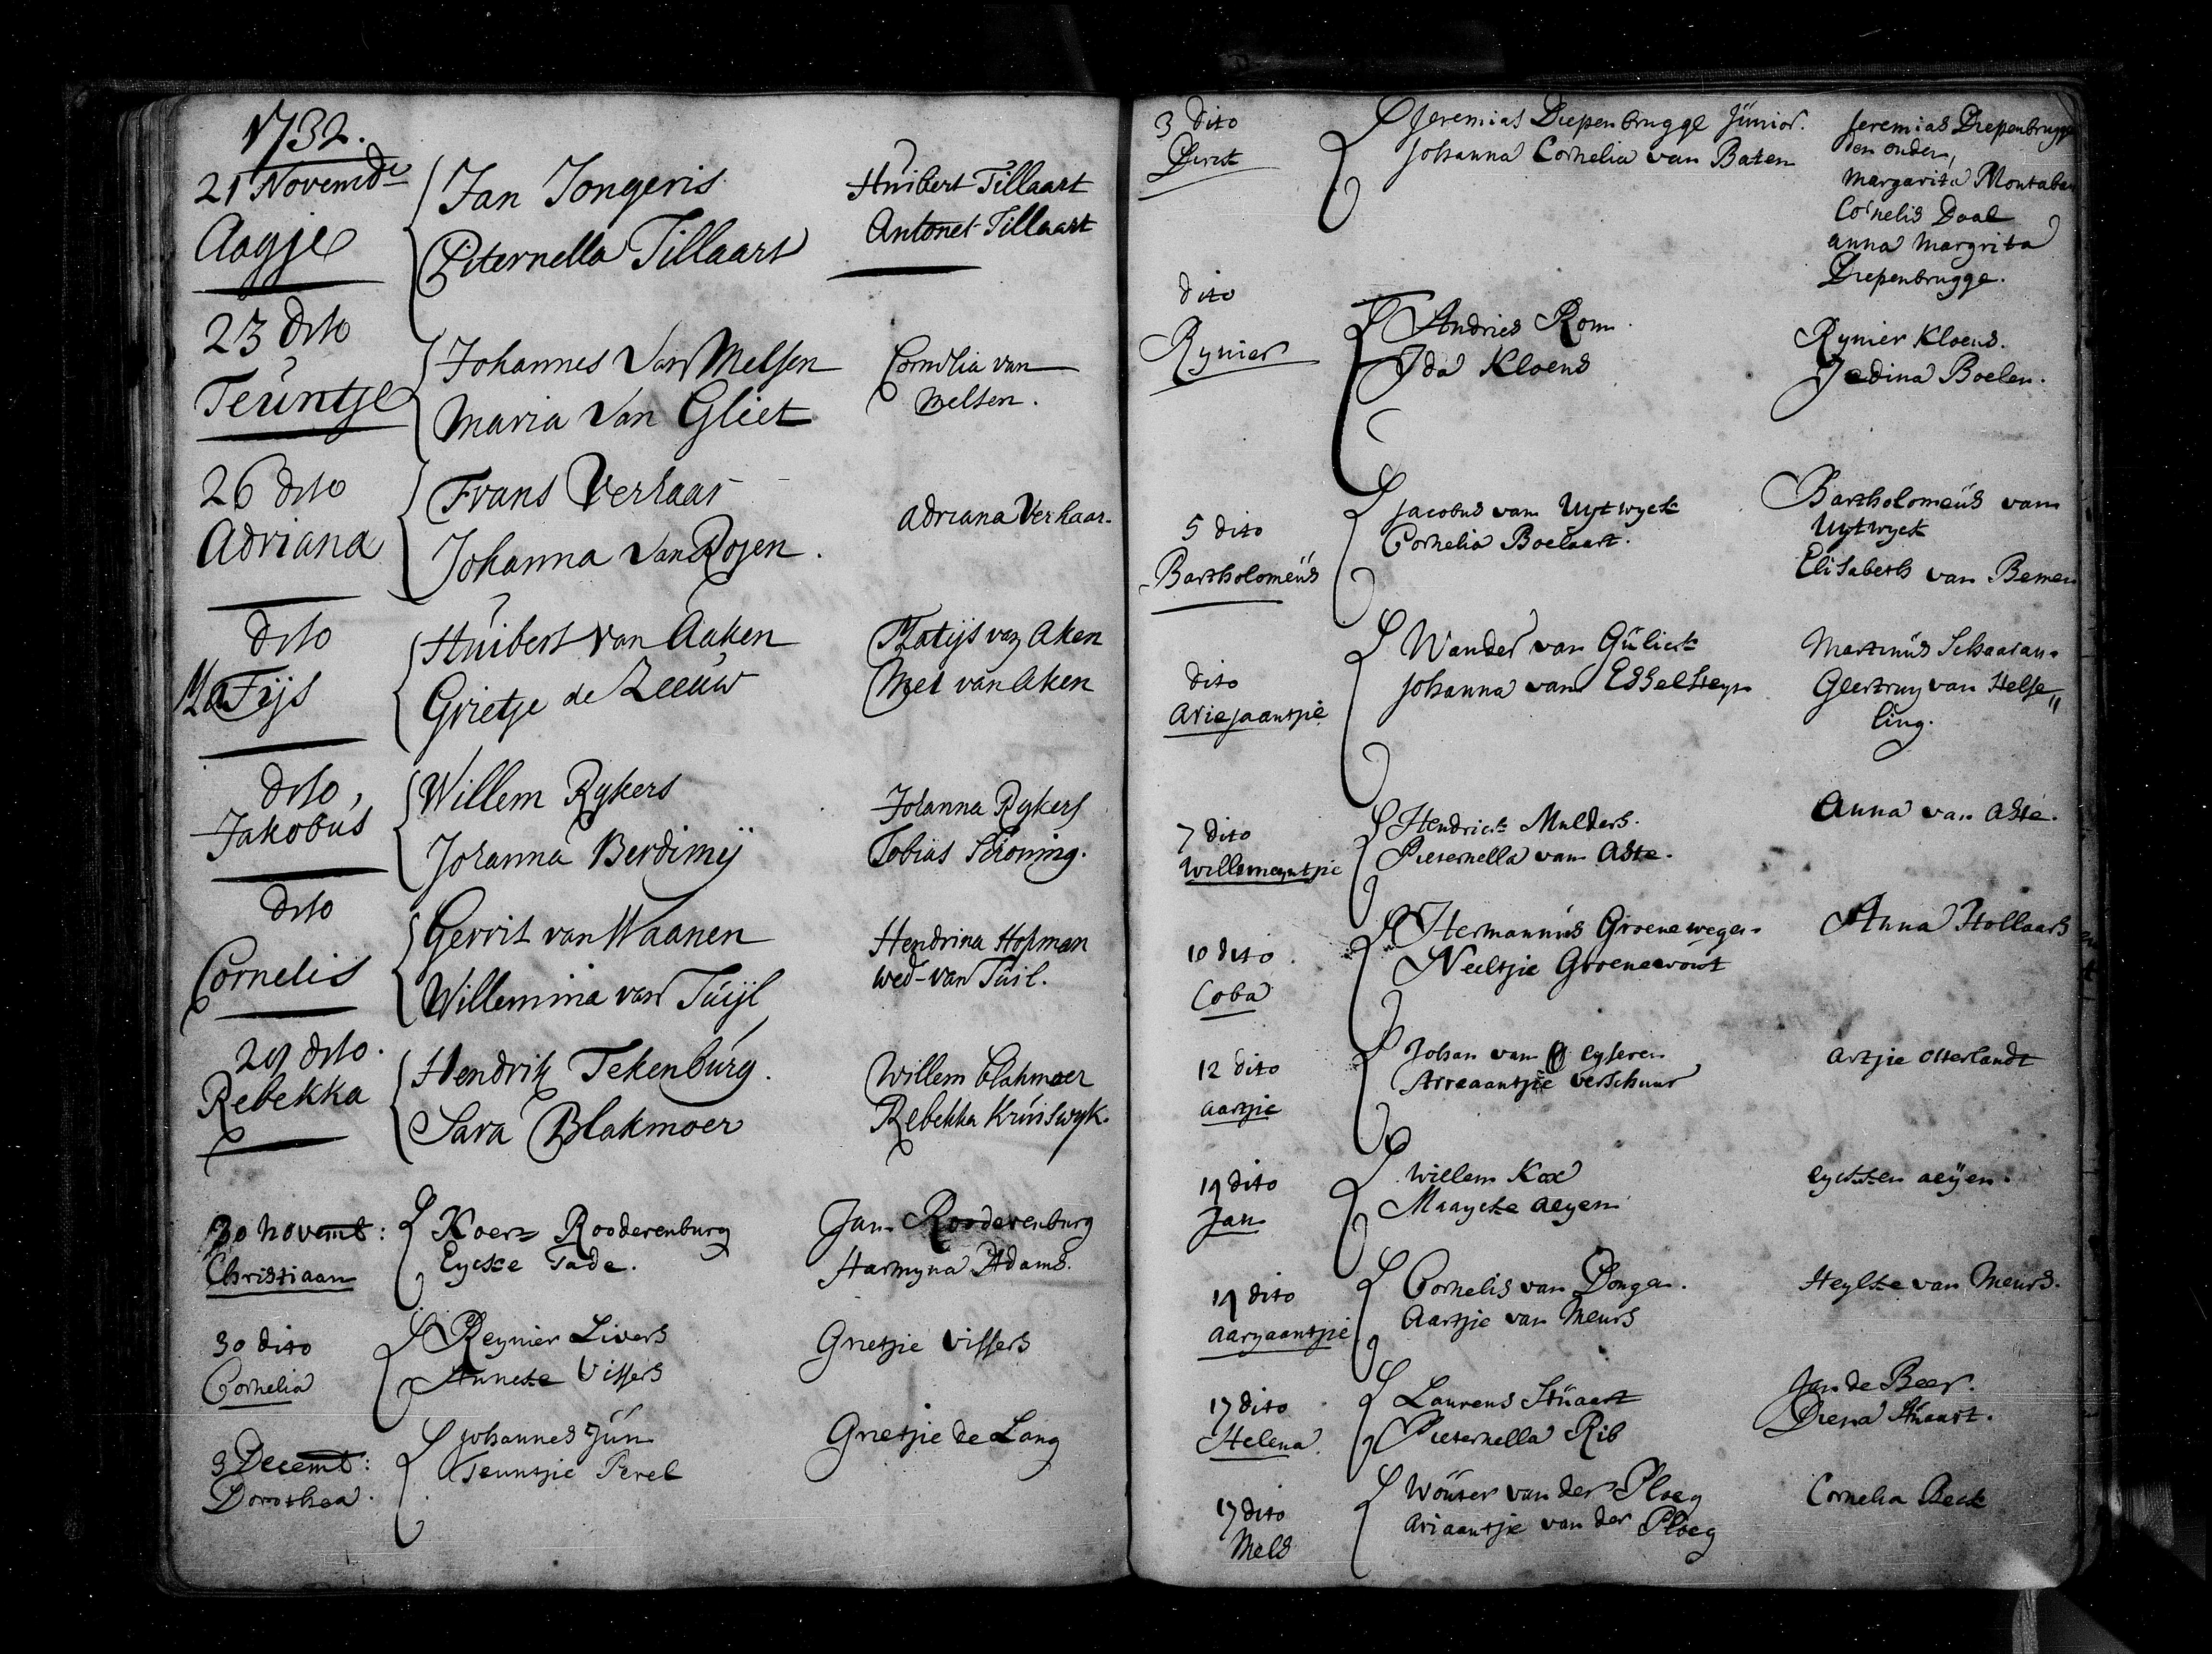 1732.
21 Novemdr
Aagje
Jan Jongeris
Piternella Tillaart
Huibert Tillaart
Antonet Tillaart
23 dito
Teuntje
Johannes van Melsen
Maria van Gliet
Cornelia van
Melsen.
26 dito
Adriana
Frans Verhaar
Johanna van Rosen.
Adriana Verhaar.
dito
Matijs
Huibert van Aaken
Grietje de Zeeuw
Matijs van Aken
Met van Aken
dito,
Jakobus
Willem Rykers
Johanna Berdimij
Johanna Rykers
Tobias Schoning.
dito
Cornelis
Gerrit van Waanen
Willemina van Tuijl
Hendrina Hopman
wed-van Tuil.
29 dito.
Rebekka
Hendrik Tekenburg.
Sara Blakmoer
Willem Blakmoer
Rebekka Kruiswyk.
30 novemb:
Christiaan
Koert Rooderenburg
Eycke Tade.
Jan Rooderenburg
Harmyna Adams.
30 dito
Cornelia
Reynier Livers
Anneke Vissers
Grietjie Vissers
3 Decemb:
Dorothea.
Johannes Jün
Teuntjie Perel
Grietjie de Lang
3 dito
Dirck
Jeremias Diepenbrugge Junior.
Johanna Cornelia van Baten
Jeremias Diepenbrugge
den ouden,
Margarita Montaban
Cornelis Daal
anna Margrita
Diepenbrugge.
dito
Rynier
Andries Rom.
Ida Kloens
Rynier Kloens.
Jedina Boelen.
5 dito
Bartholomeüs
Jacobus van Uytwyck
Cornelia Boelaart.
Bartholomeüs van
Uytwyck
Elisabeth van Bemen
dito
Ariejaantjie
Wander van Gülick
Johanna van Esselsteyn
Martinus Schaaran.
Geertruy van Helse„
ling.
7 dito
Willemeyntjie
Hendrick Mulders.
Pieternella van Aste.
Anna van Aste.
10 dito.
Coba
Hermannus Groenewegen.
Neeltjie Groenewout
Anna Hollaars
12 dito
aartjie
Johan van Eyseren
Arreaantjie verschuur
Artjie Otterlandt
14 dito
Jan
Willem Kox
Maaycke aeyen
eycken aeÿen.
14 dito
Aaryaantjie
Cornelis van Dongen.
Aartjie van Meurs
Heylke van Meurs.
17 dito
Helena.
Laurens Stüaart
Pieternella Rib
Jan de Beer.
Diena Stüaart.
17 dito
Mels
Wouter van der Ploeg
Ariaantje van der Ploeg
Cornelia Beck